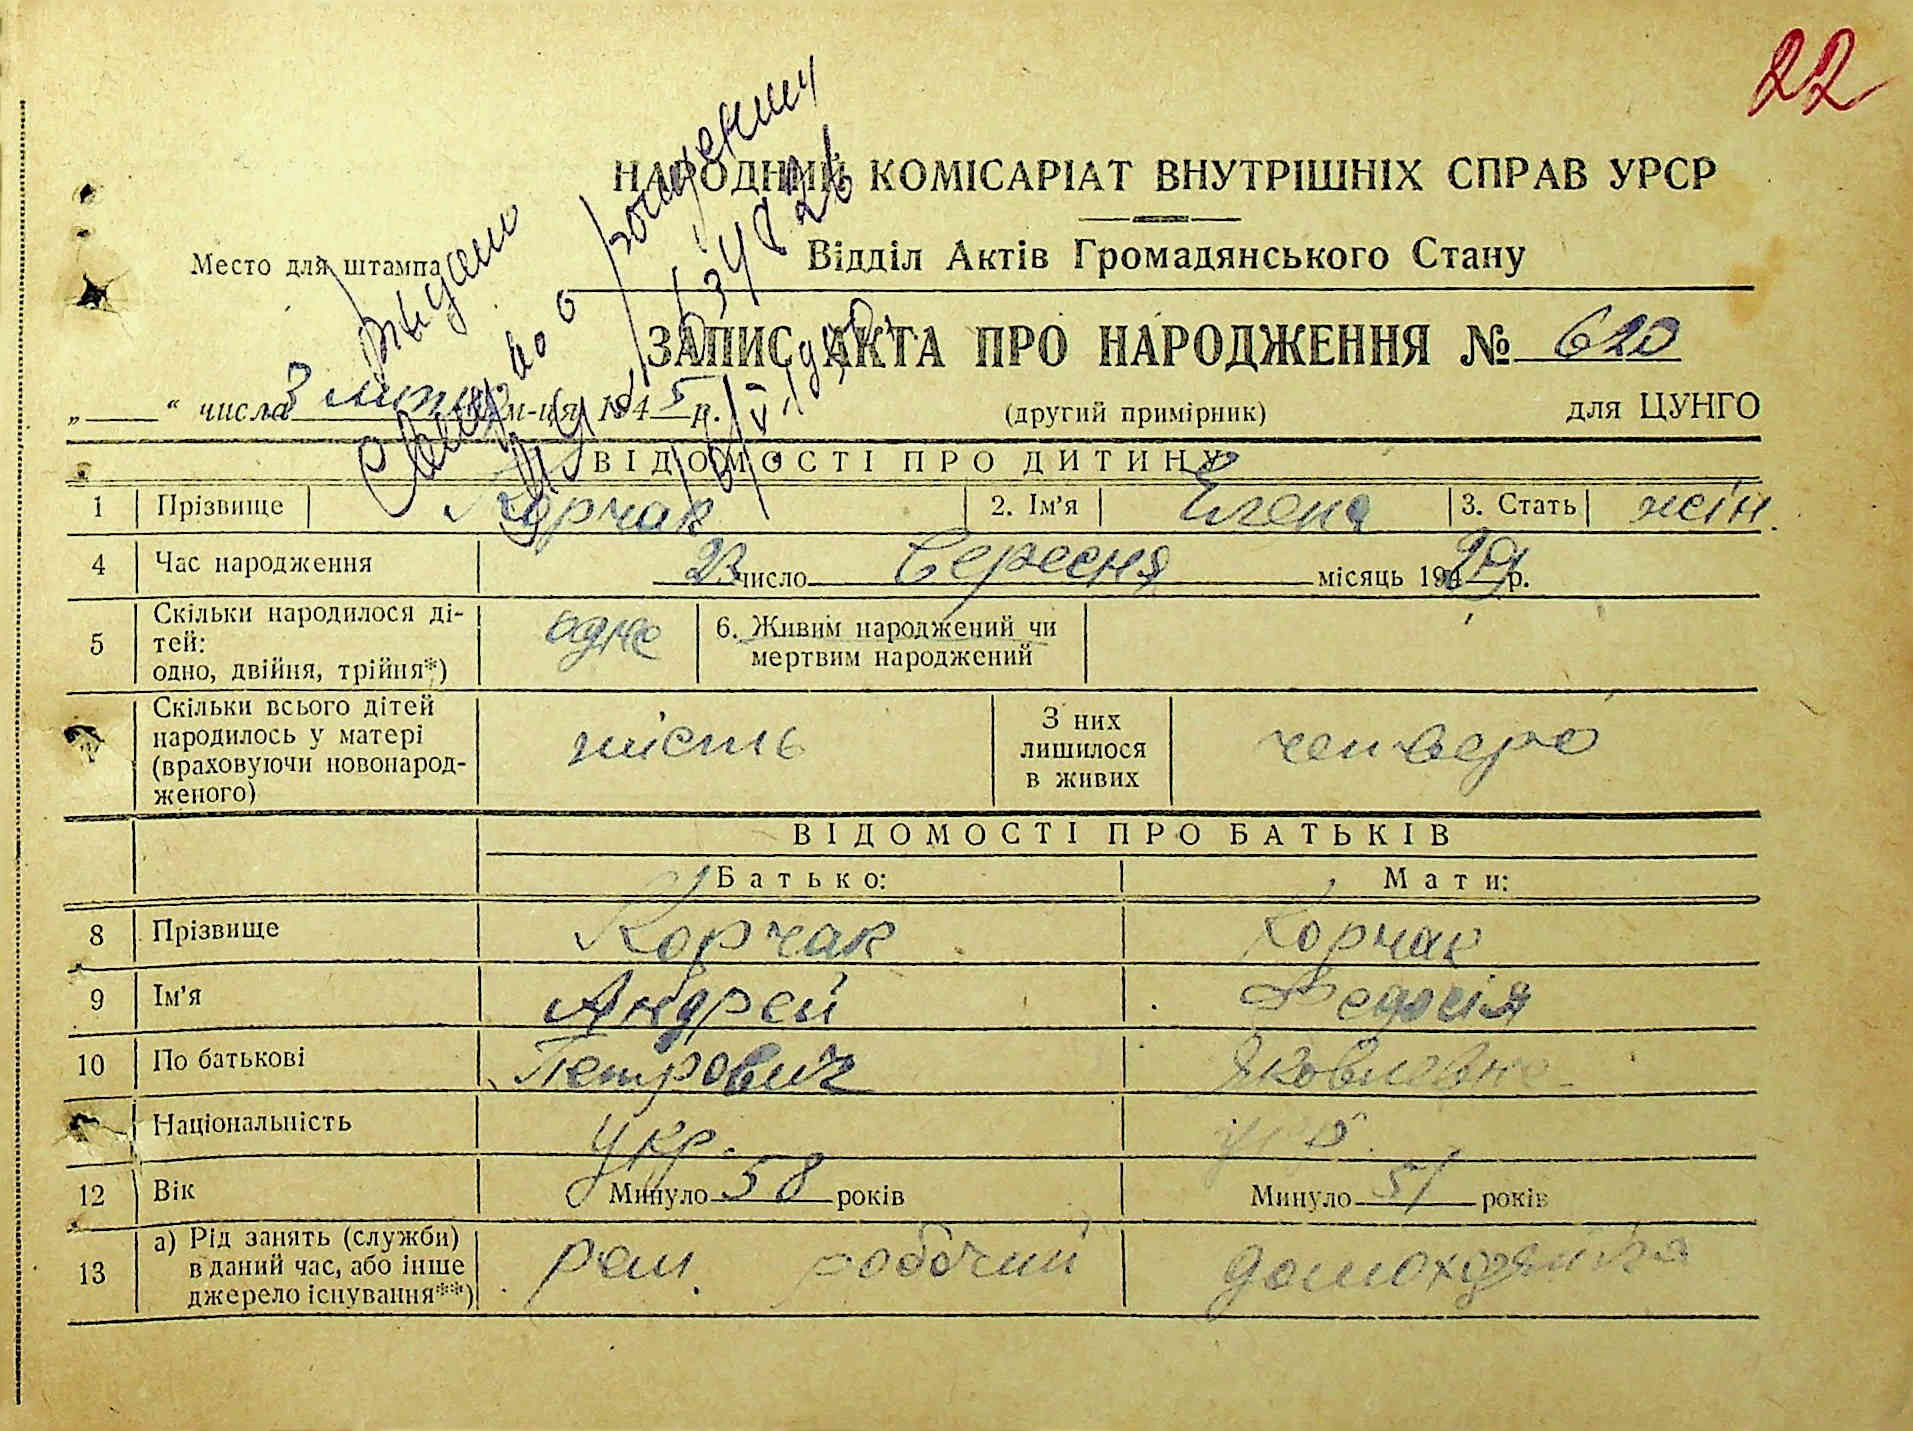 22
НАРОДНИЙ КОМІСАРІАТ ВНУТРІШНІХ СПРАВ УРСР
Место для штампа
Відділ Актів Громадянського Стану
ЗАПИС АКТА ПРО НАРОДЖЕННЯ № 620
„ “ числа 3 м-ця 1945 р. (другий примірник) для ЦУНГО
ВІДОМОСТІ ПРО ДИТИНУ
1 Прізвище Корчак 2. Ім'я Елена 3. Стать жін.
4 Час народження 23 число Вересня місяць 194 29 р.
5 Скільки народилося ді-
тей:
одно, двійня, трійня*) одно 6. Живим народжений чи
мертвим народжений
Скільки всього дітей
народилось у матері
(враховуючи новонарод-
женого) шість З них
лишилося
в живих четверо
ВІДОМОСТІ ПРО БАТЬКІВ
Батько: Мати:
8 Прізвище Корчак Корчак
9 Ім'я Андрей Федосія
10 По батькові Петрович Яковлевна
Національність укр. укр.
12 Вік Минуло 58 років Минуло 51 років
13 а) Рід занять (служби)
в даний час, або інше
джерело існування**) робочий домохозяйка
Выдано
Свид-во о рождении